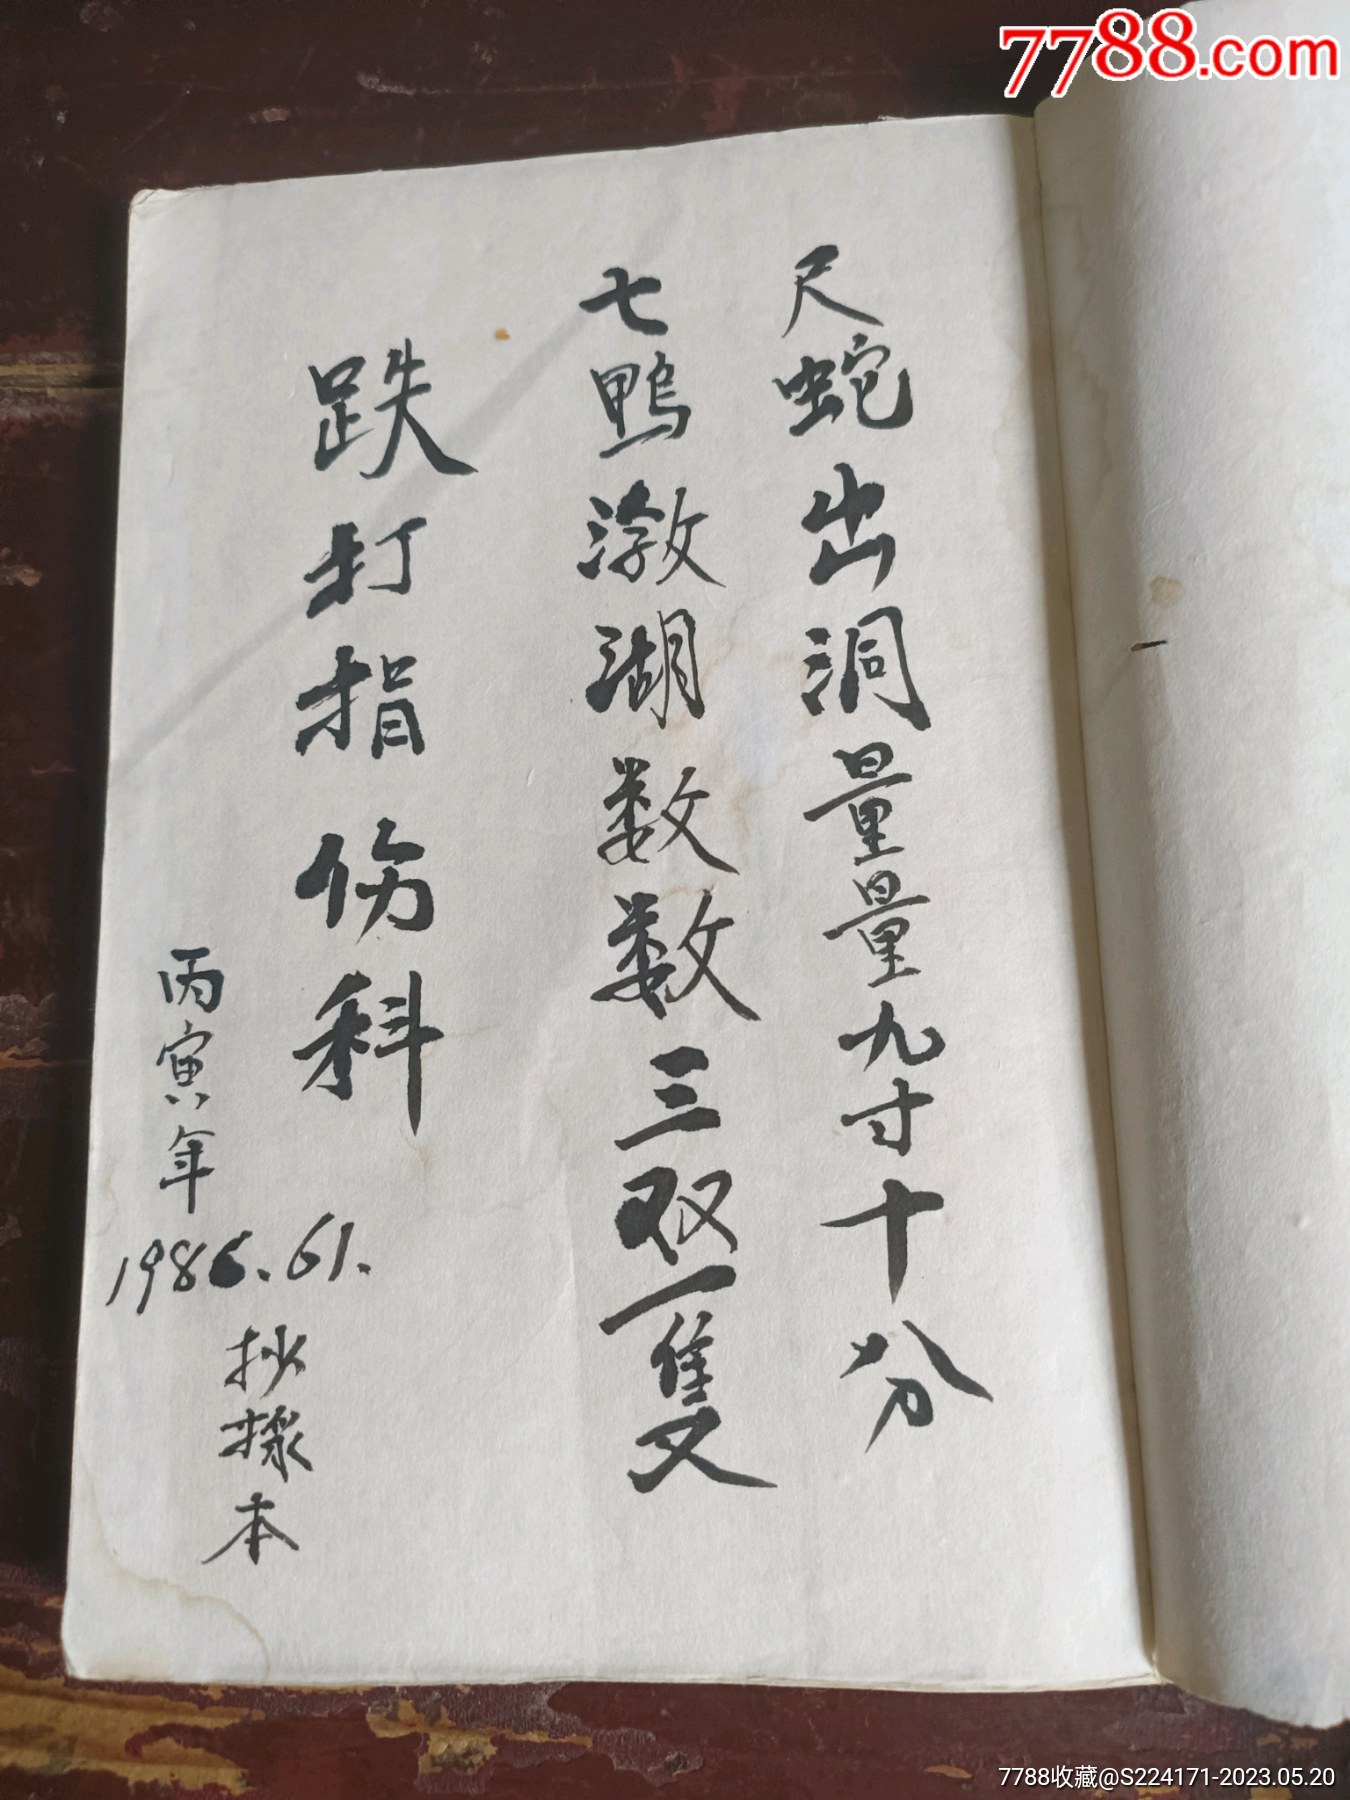 7788.com
尺蛇出洞量量九寸十分
七鴨湖数数三双一隻
跌打捐伤科
丙寅年
1986.61.
抄本
7788收藏@S224171-2023.05.20